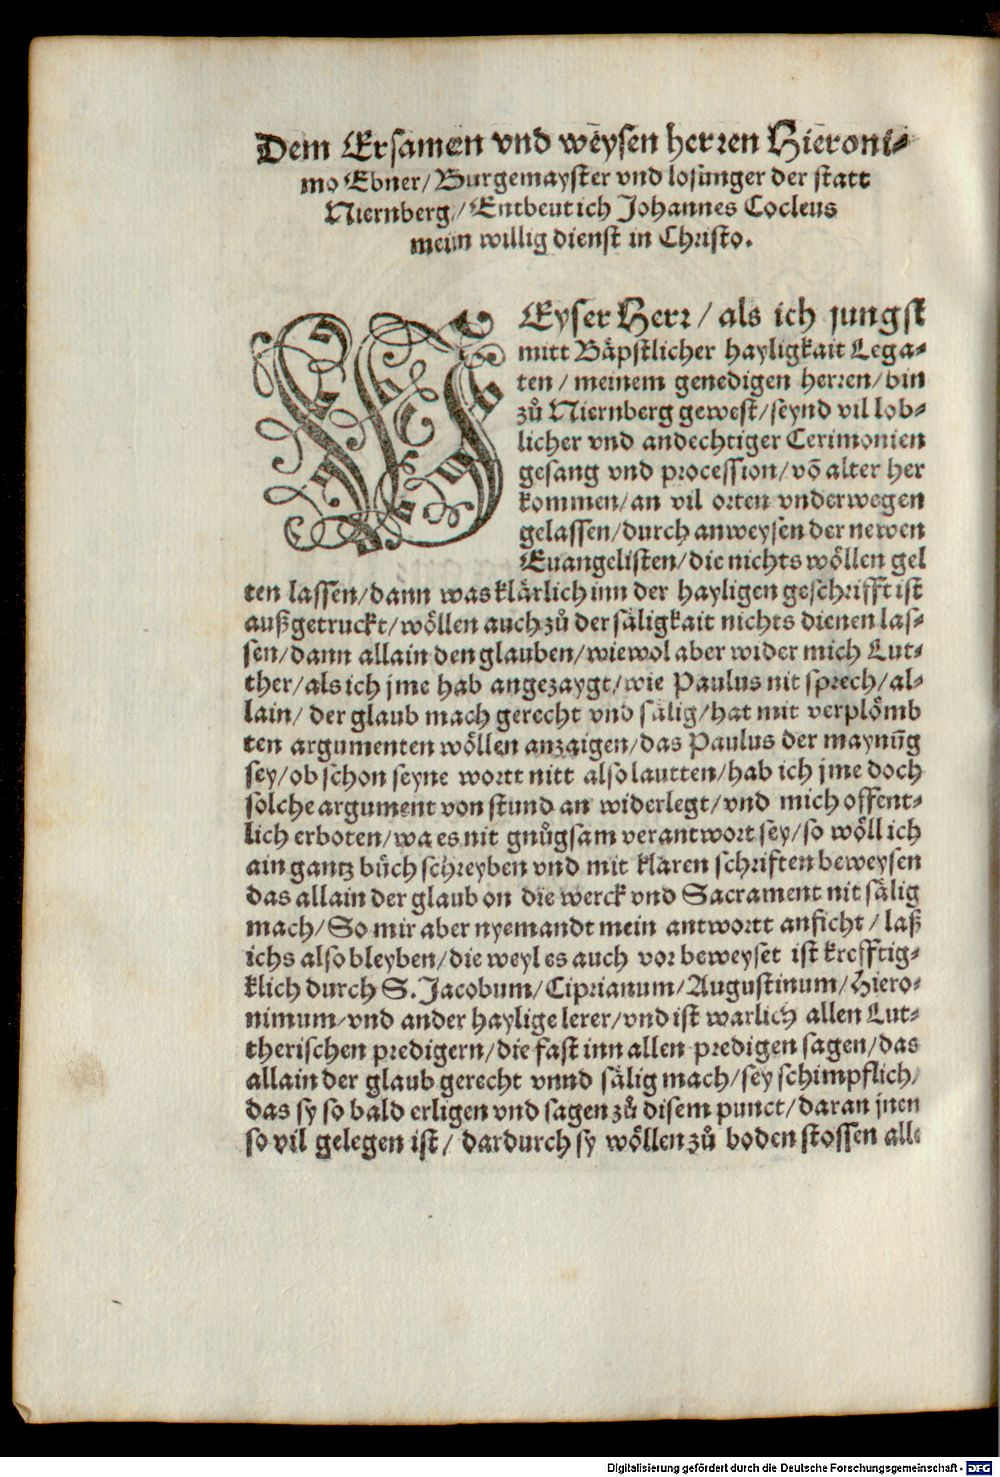 Dem Ersamen vnd weysen herren Hieroni⸗
mo Ebner/ Burgemayster vnd losunger der statt
Niernberg/ Entbeut ich Johannes Cocleus
mein willig dienst in Christo.
WEyser Herr/ als ich jungst
mitt Bäpstlicher hayligkait Lega⸗
ten/ meinem genedigen herren/ bin
zů Niernberg gewest/ seynd vil lob⸗
licher vnd andechtiger Cerimonien
gesang vnd procession/ võ alter her
kommen/ an vil orten vnderwegen
gelassen/ durch anweysen der newen
Euangelisten/ die nichts wöllen gel
ten lassen/ dann was klärlich inn der hayligen geschrifft ist
außgetruckt/ wöllen auch zů der säligkait nichts dienen las⸗
sen/ dann allain den glauben/ wiewol aber wider mich Lut⸗
ther/ als ich jme hab angezaygt/ wie Paulus nit sprech/ al⸗
lain/ der glaub mach gerecht vnd sälig/ hat mit verplömb
ten argumenten wöllen anzaigen/ das Paulus der maynũg
sey/ ob schon seyne wortt nitt also lautten/ hab ich jme doch
solche argument von stund an widerlegt/ vnd mich offent⸗
lich erboten/ wa es nit gnůgsam verantwort sey/ so wöll ich
ain gantz bůch schreyben vnd mit klaren schriften beweysen
das allain der glaub on die werck vnd Sacrament nit sälig
mach/ So mir aber nyemandt mein antwortt anficht/ laß
ichs also bleyben/ die weyl es auch vor beweyset ist krefftig⸗
klich durch S. Jacobum/ Ciprianum/ Augustinum/ Hiero⸗
nimum/ vnd ander haylige lerer/ vnd ist warlich allen Lut⸗
therischen predigern/ die fast inn allen predigen sagen/ das
allain der glaub gerecht vnnd sälig mach/ sey schimpflich/
das sy so bald erligen vnd sagen zů disem punct/ daran jnen
so vil gelegen ist/ dardurch sy wöllen zů boden stossen alle
Digitalisierung gefördert durch die Deutsche Forschungsgemeinschaft - DFG